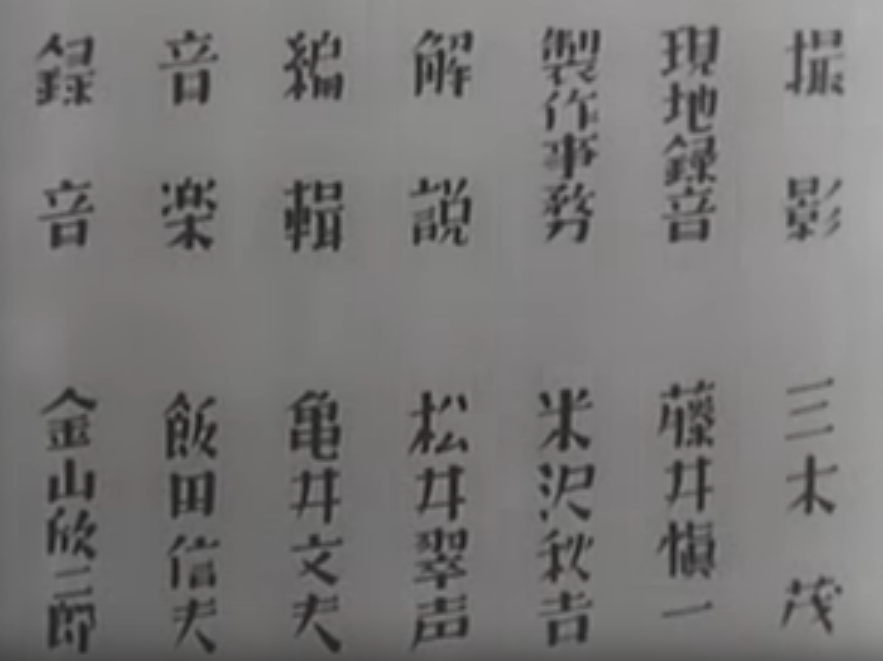 撮影 三木茂
現地録音 藤井慎一
製作事務 米沢秋吉
解説 松井翠声
編輯 亀井文夫
音楽 飯田信夫
録音 金山欣二郎